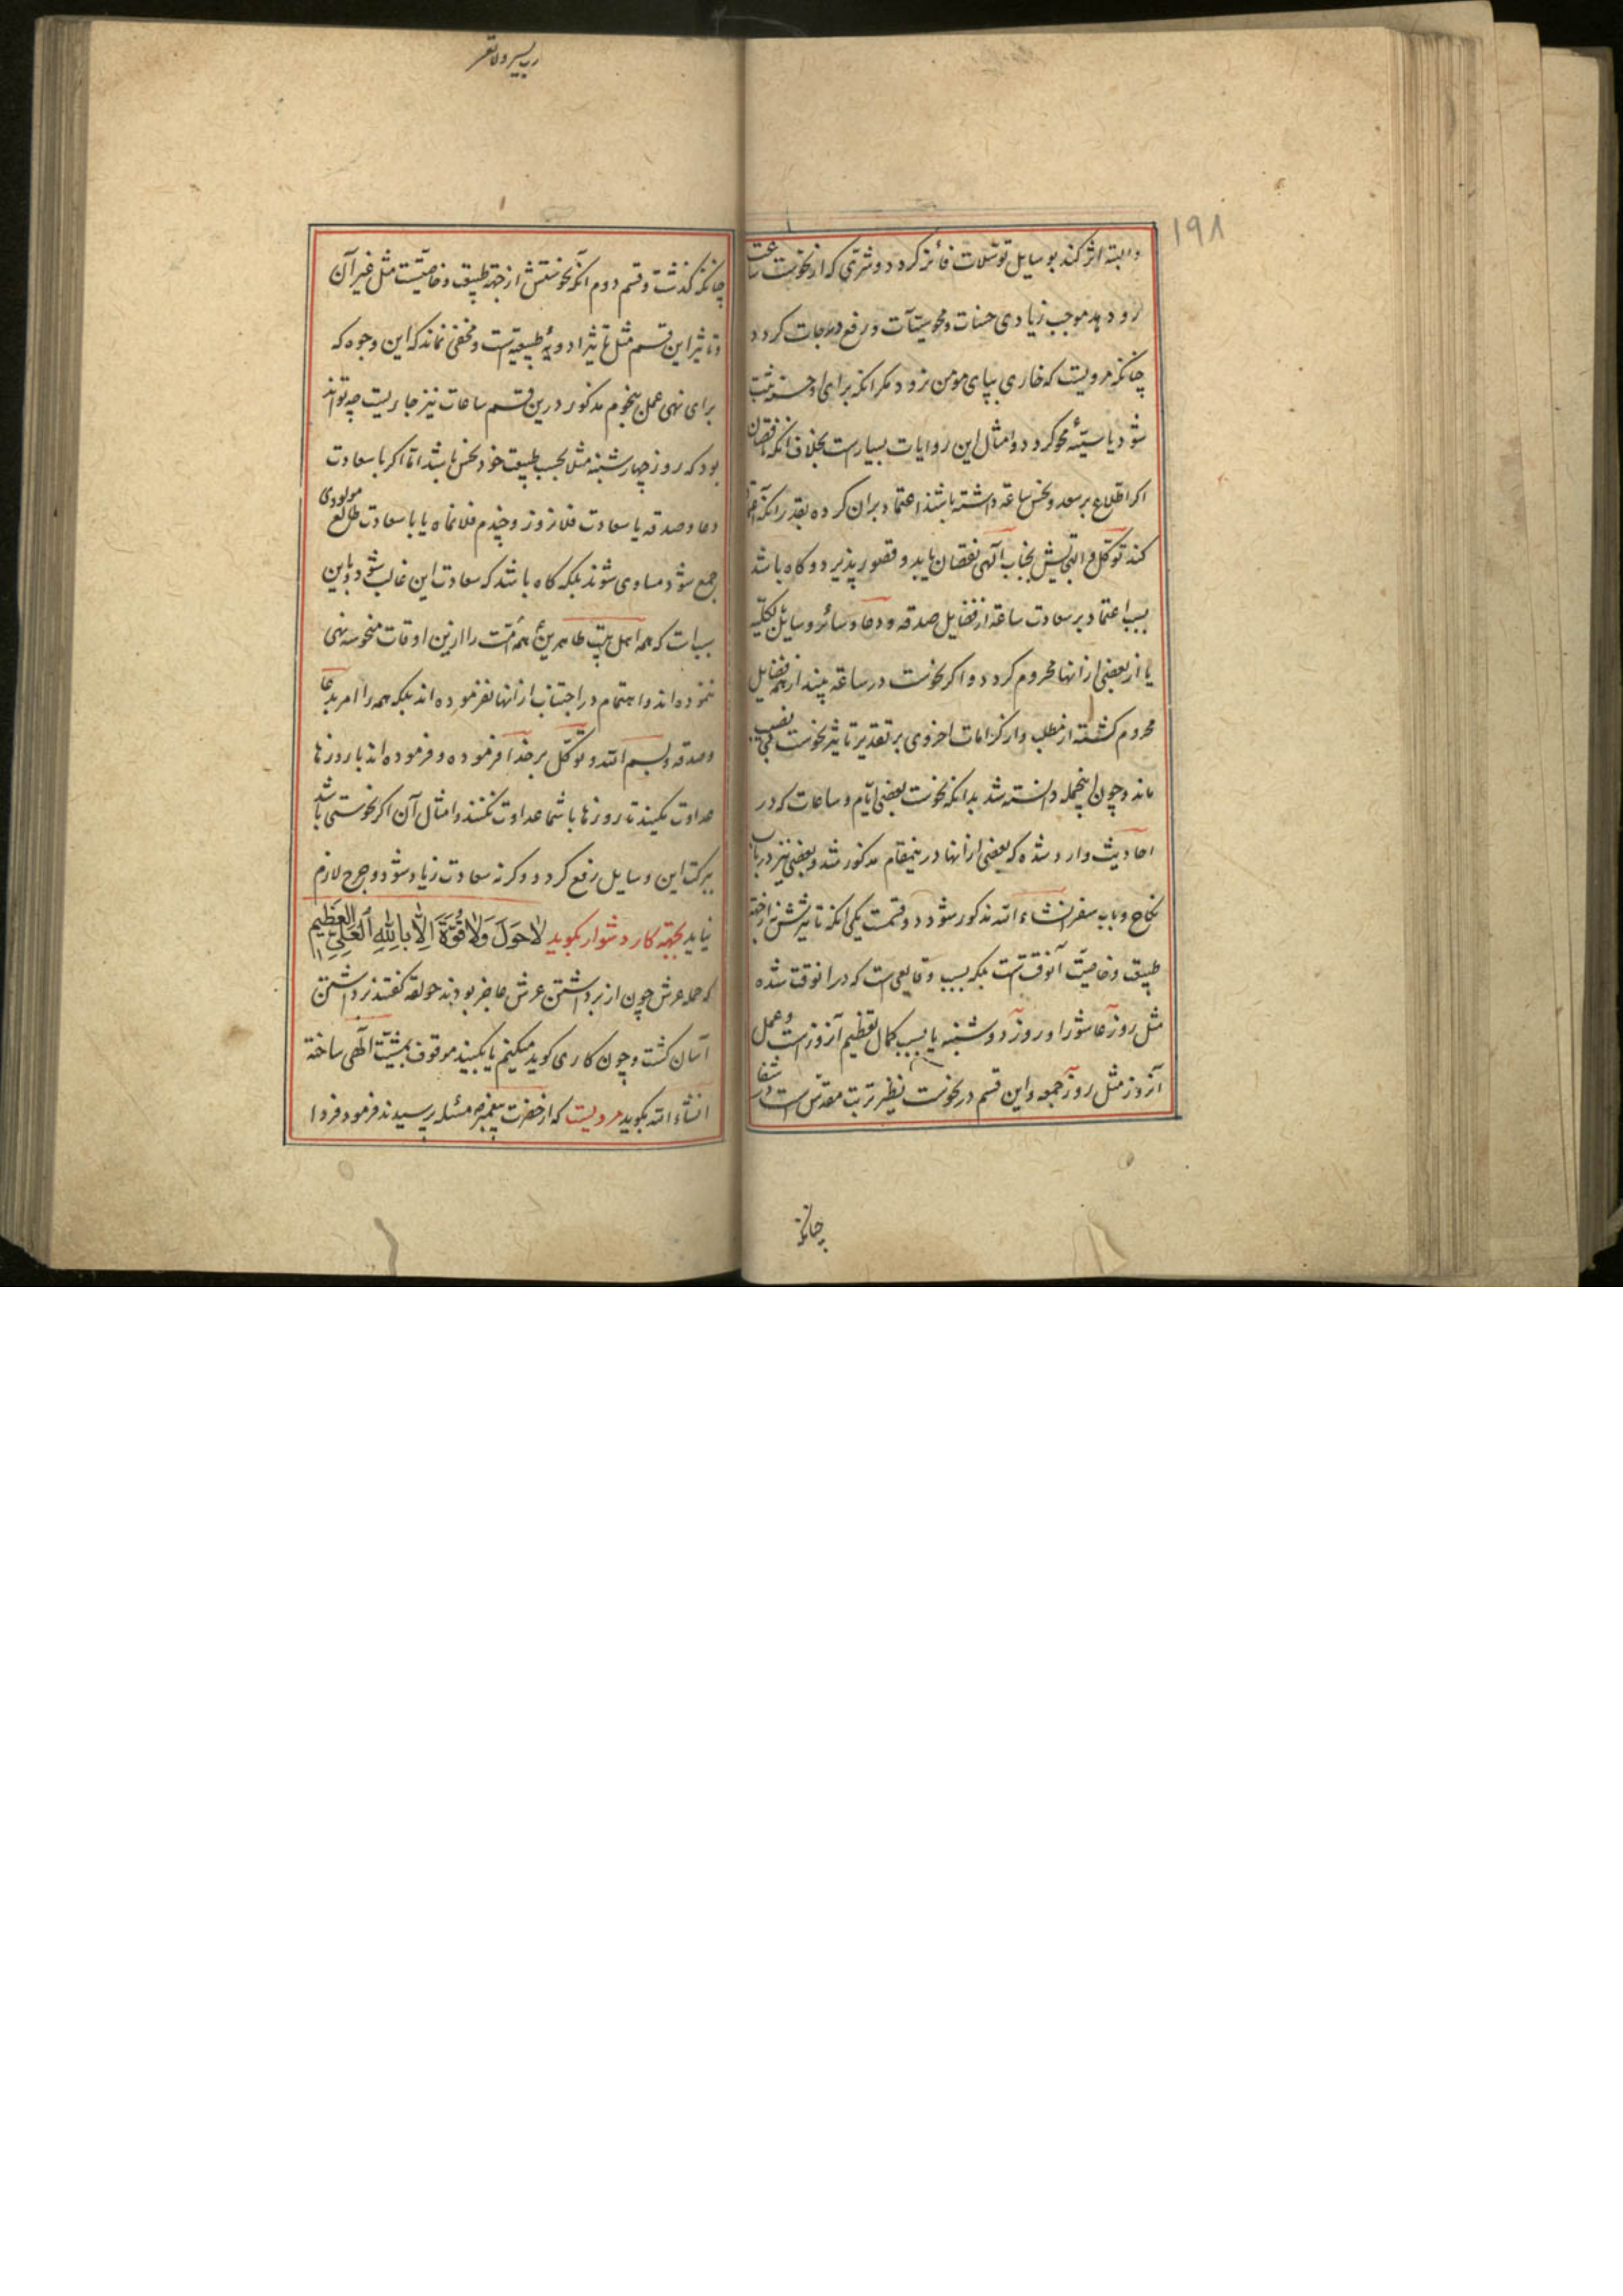 ۱۹۸
والبته اثر کند بوسایل توسّلات فائز کردد و شرّی که از نحوست ساعت
رو دهد موجب زیادی حسنات و محو سیّآت و رفع درجات کردد
چنانکه مرویست که خاری بپای مومن نرود مکر انکه برای او حسنه ثبت
شود یا سیّئهٔ محو کردد و امثال این روایات بسیارست بخلاف انکه نقصان
اکر اطّلاع بر سعد و نحس ساعة داشته باشند اعتماد بران کرده بقدر انکه اعتماد
کند توکّل و التجایش بجناب آلهی نقصان یابد و قصور پذیرد و کاه باشد
بسبب اعتماد بر سعادت ساعة از فضایل صدقه و دعا و سائر وسایل بکلّیه
یا از بعضی از انها محروم کردد و اکر نحوست در ساعة بیند از همه فضایل
محروم کشته از مطلب و از کرامات اخروی بر تقدیر تاثیر نحوست بی نصیب
ماند و چون اینجمله دانسته شد بدانکه نحوست بعضی ایّام و ساعات که در
احادیث وارد شده که بعضی از انها درینمقام مذکور شد و بعضی نیز در باب
نکاح و باب سفر انشاء الله مذکور شود دو قسمت یکی انکه تاثیرشش از جهة
طبیعت و خاصیّت آنوقت نیست بلکه بسبب وقایعی است که در انوقت شده
مثل روز عاشورا و روز دوشنبه یا بسبب کمال تعظیم آنروز است و عمل
آنروز مثل روز جمعه و این قسم در نحوست نظیر تربت مقدّس است در شفا
چنانکه
رب یسر ولا تعسر
چنانکه کذشت و قسم دوم آنکه نحوستش از جهة طبیعت و خاصیّتست مثل غیر آن
و تاثیر این قسم مثل تاثیر ادویهٔ طبیعیه است و مخفی نماند که این وجوه که
برای نهی عمل بنجوم مذکور درین قسم ساعات نیز جاریست چه تواند
بود که روز چهارشنبه مثلا بحسب طبیعت خود نحس باشد امّا اکر با سعادت
دعا و صدقه یا سعادت فلان روز و چندم فلانماه یا با سعادت طالع مولودی
جمع شود مساوی شوند بلکه کاه باشد که سعادت این غالب شود و باین
سبب است که همه اهل بیت طاهرین همهٔ امّت را ازین اوقات منحوسه نهی
ننموده اند و اهتمام در اجتناب از انها نفرموده اند بلکه همه را امر بدعا
و صدقه و بسم الله و توکّل بر خدا فرموده و فرموده اند با روزها
عداوت مکنید تا روزها با شما عداوت نکنند و امثال آن اکر نحوستی باشد
ببرکت این وسایل رفع کردد و کرنه سعادت زیاد شود و حرج لازم
نیاید بجهة کار دشوار بکوید لَا حَولَ وَلَا قُوَّةَ اِلّا بِاللّهِ اَلعَلِیِّ العَظیمِ
که حمله عرش چون از برداشتن عرش عاجز بودند حولقه کفتند برداشتن
آسان کشت و چون کاری کوید میکنم یا بکنید موقوف بمشیّت آلهی ساخته
انشاء الله بکوید مرویست که از حضرت پیغمبر مسئله پرسیدند فرمود فردا